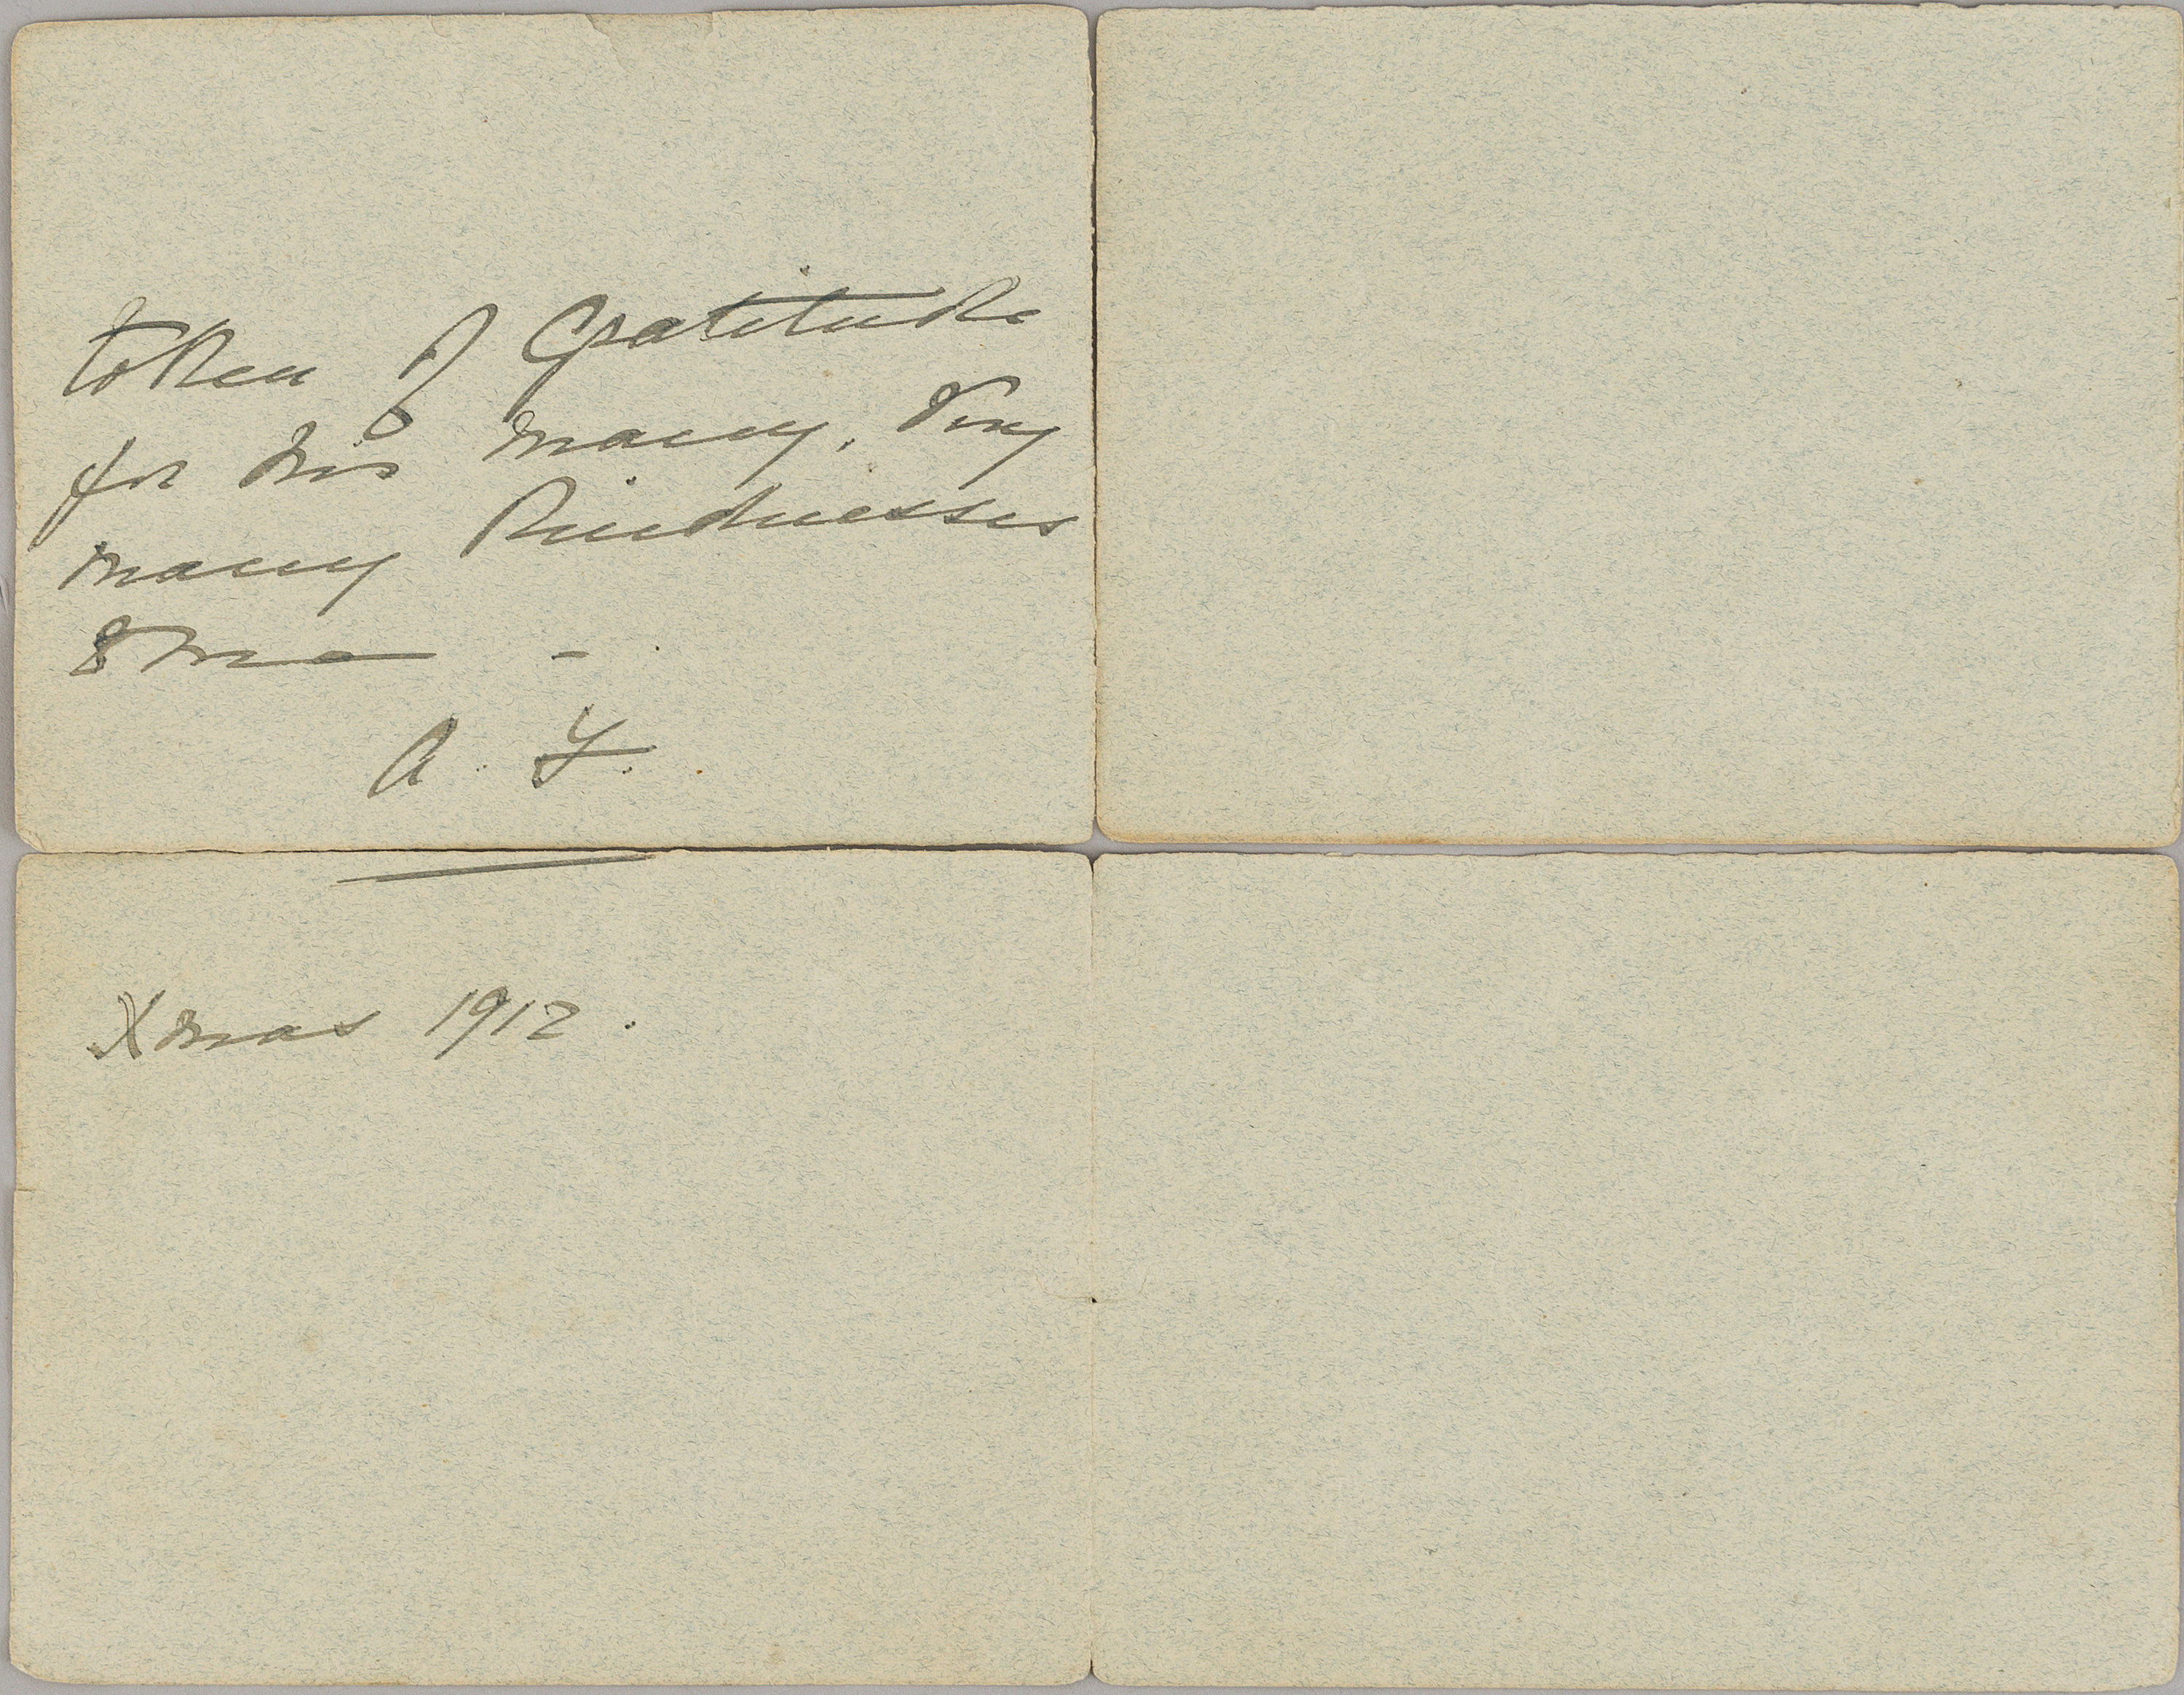 token of Gratitude
for his many, very
many Kindnesses
to me —
A. F.
Xmas 1912.